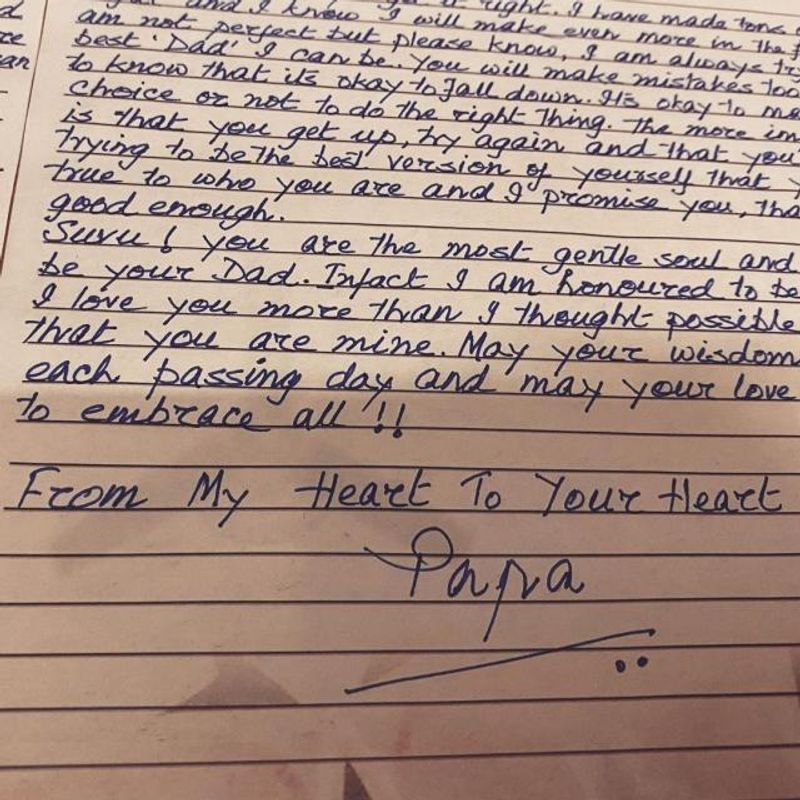 d
re
an
and I know get it right. I have made tons
am not perfect but please know, I will make even more in the f
best 'Dad' I can be. You will make mistakes too
to know that its okay to fall down. Its okay to ma
choice or not to do the right thing. The more im
is that you get up, try again and that you
trying to be the best version of yourself that y
true to who you are and I promise you, tha
good enough.
Suvu! you are the most gentle soul and
be your Dad. Infact I am honoured to be
I love you more than I thought possible
that you are mine. May your wisdom
each passing day and may your love
to embrace all!!
From My Heart To Your Heart
Papa